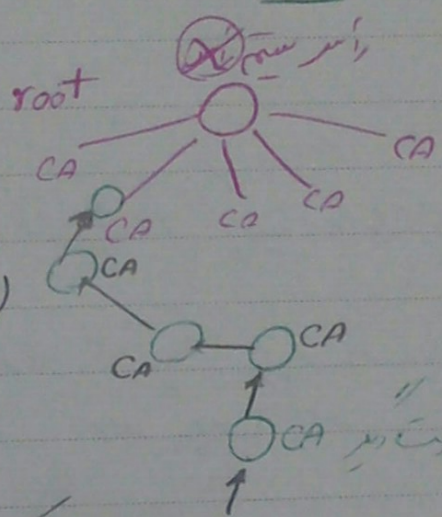 root
CA CA
CA CA CA
CA
CA CA
CA